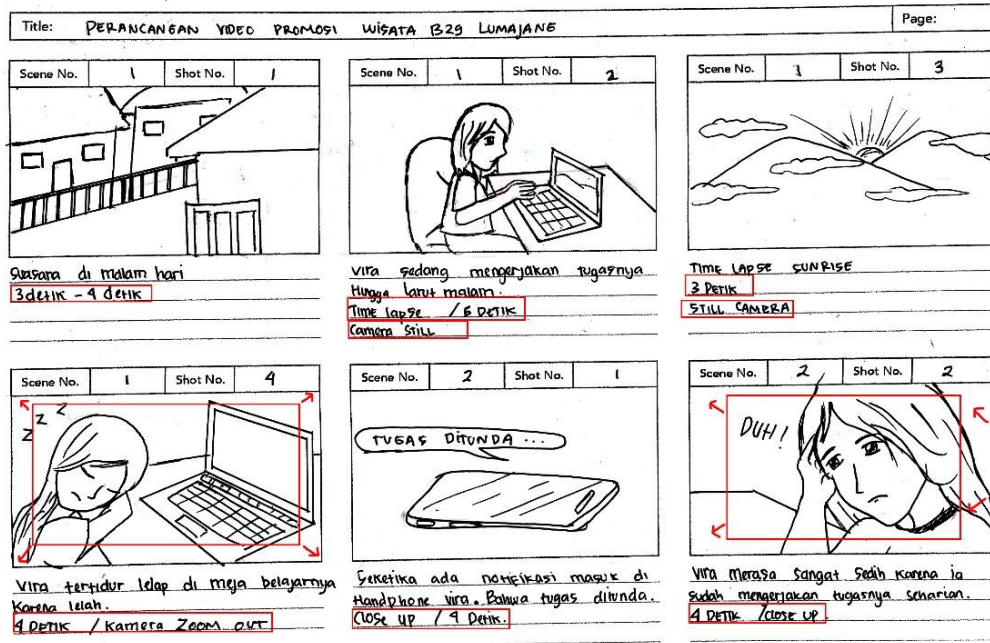 Title: PERANCANGAN VIDEO PROMOSI WISATA B29 LUMAJANG
Page:
Scene No. 1 Shot No. 1
Suasana di malam hari
3 detik - 4 detik
Scene No. 1 Shot No. 2
Vira sedang mengerjakan tugasnya
Hingga larut malam.
Time lapse / 6 DETIK
Camera STILL
Scene No. 1 Shot No. 3
TIME LAPSE SUNRISE
3 DETIK
STILL CAMERA
Scene No. 1 Shot No. 4
Z Z Z
Vira tertidur lelap di meja belajarnya
karena lelah.
4 DETIK / Kamera ZOOM OUT
Scene No. 2 Shot No. 1
TUGAS DITUNDA ...
Seketika ada notifikasi masuk di
Handphone vira. Bahwa tugas ditunda.
Close UP / 4 Detik.
Scene No. 2 Shot No. 2
DUH!
Vira merasa sangat sedih karena ia
sudah mengerjakan tugasnya seharian.
4 DETIK / close UP